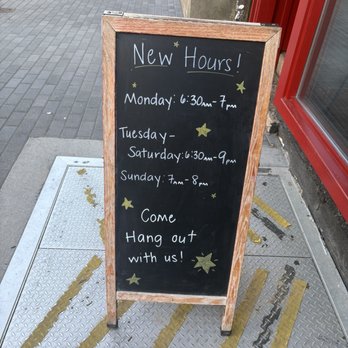 New Hours!
Monday: 6:30am-7pm
Tuesday-
Saturday: 6:30am-9pm
Sunday: 7am-8pm
Come
Hang out
with us!